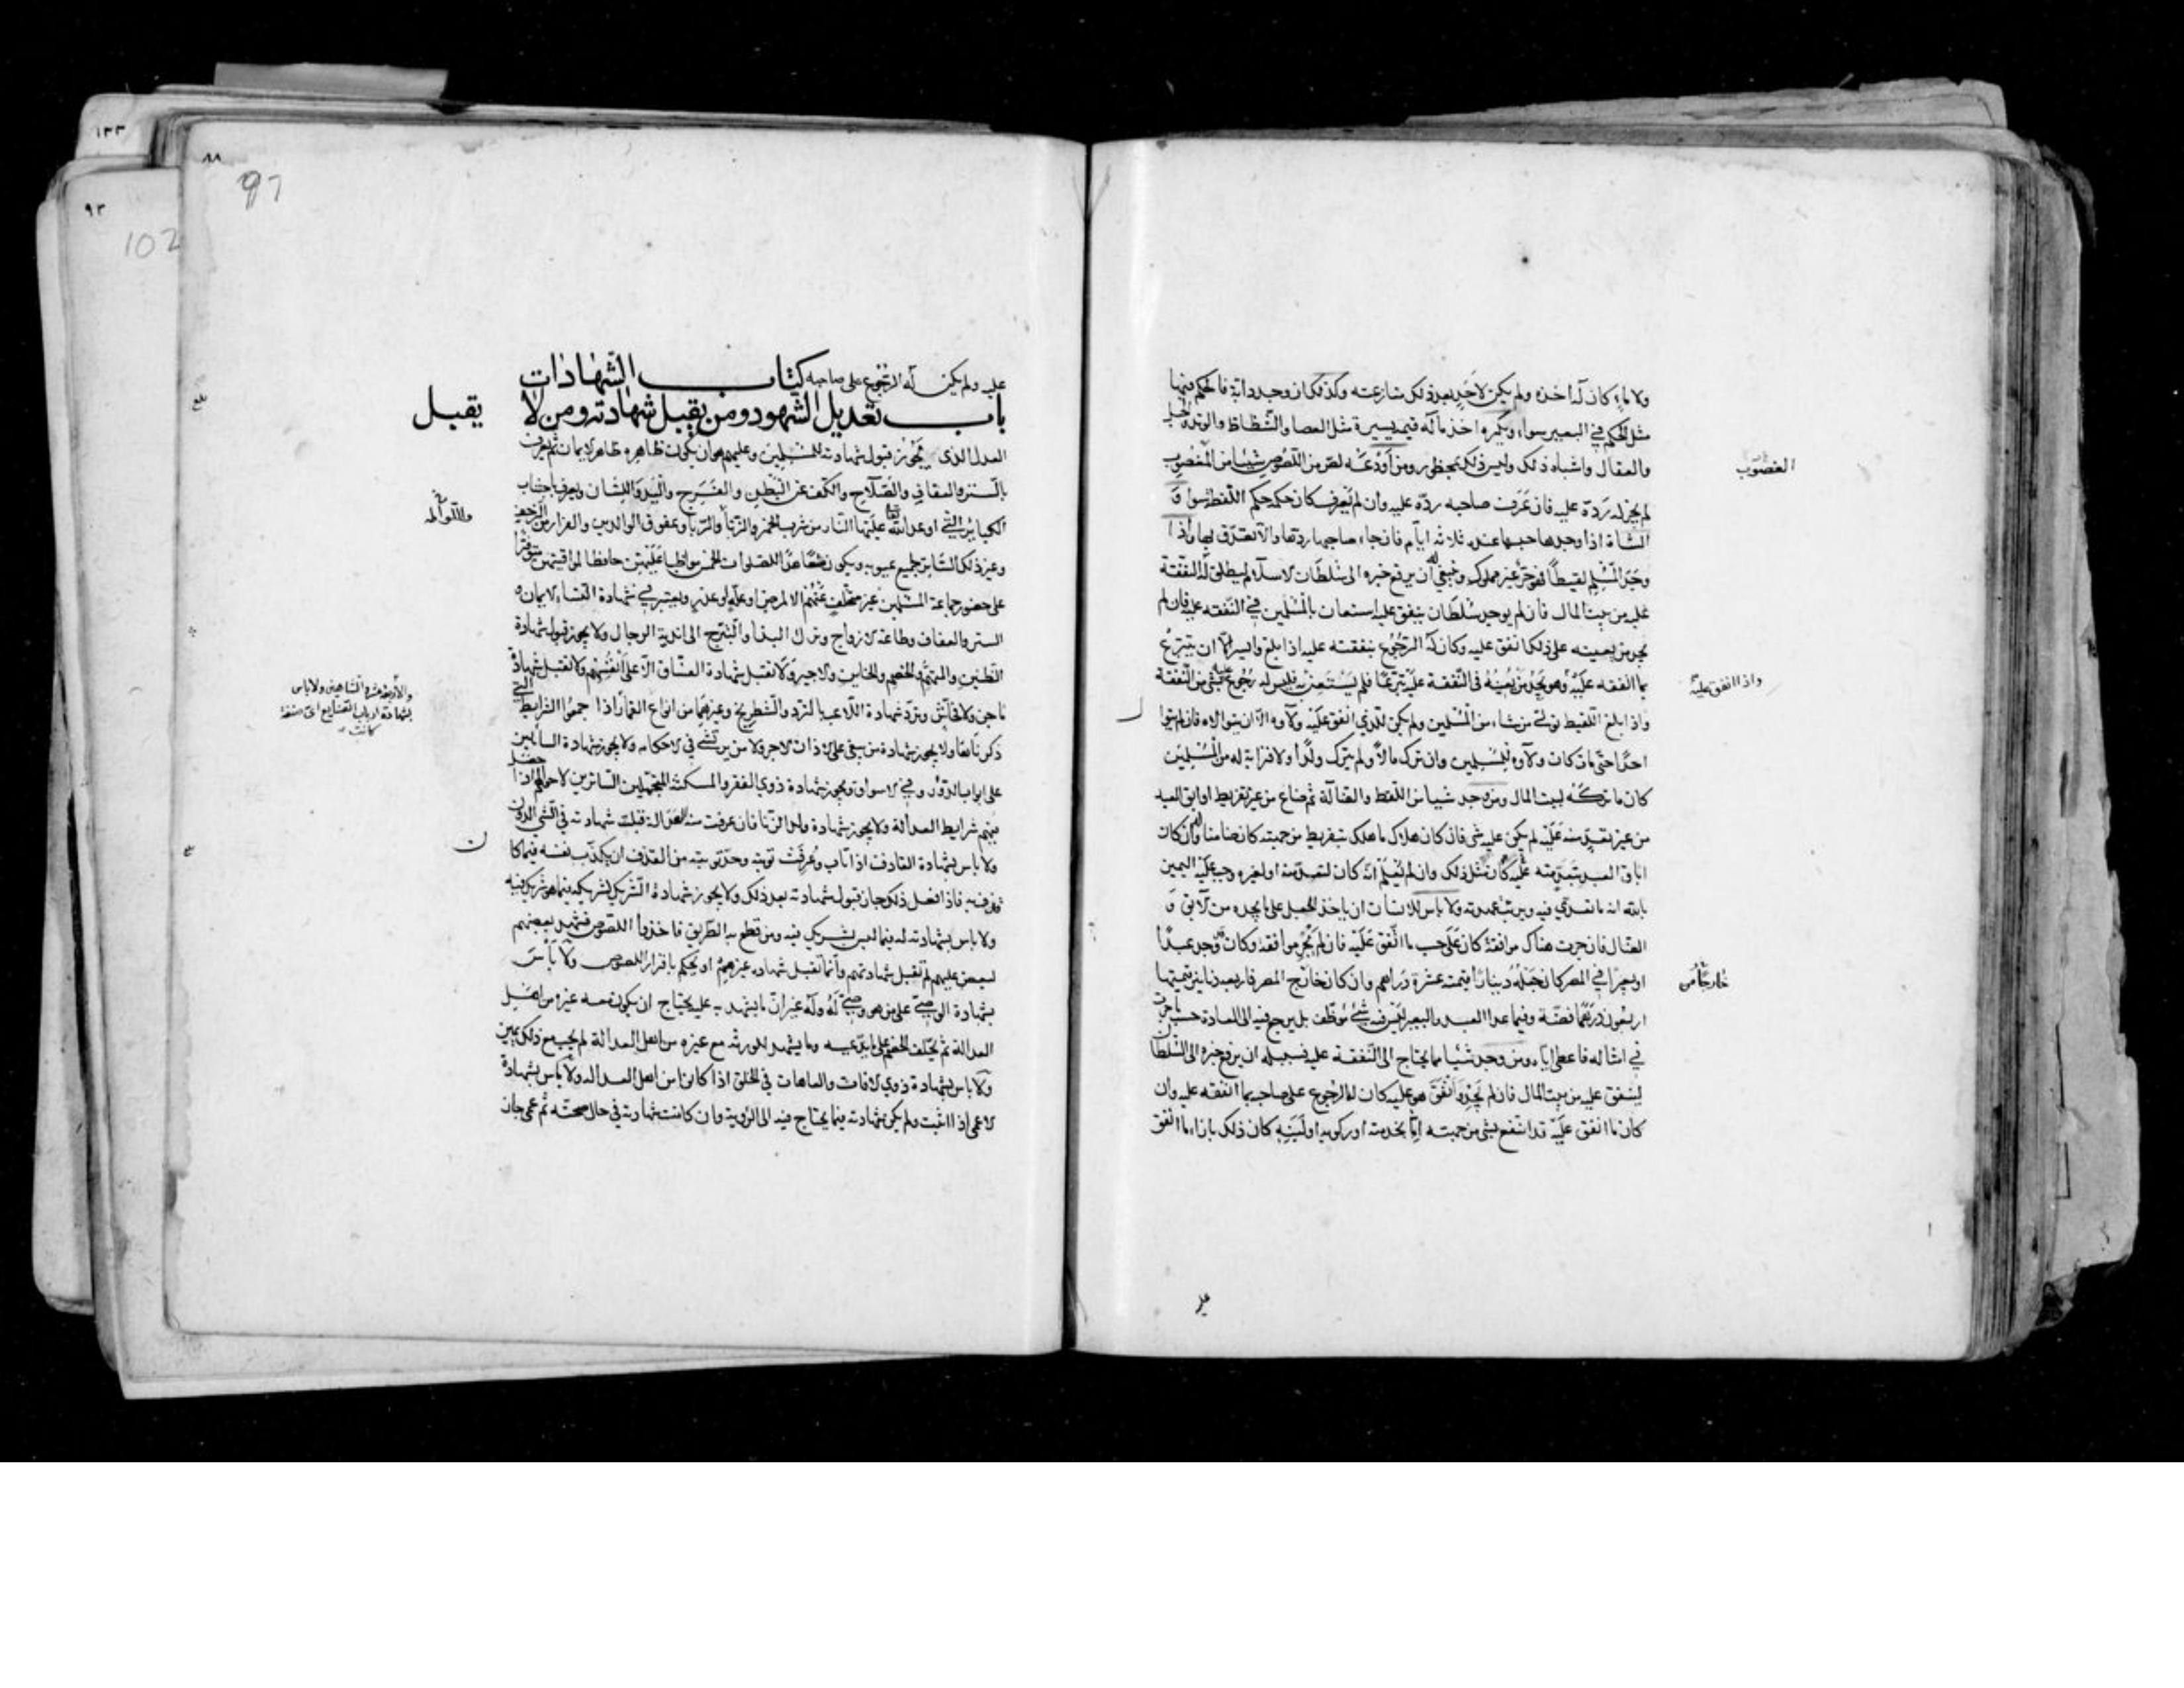 ولا ماء كان له اخذه ولم يكن لاحد بعد ذلك منازعته وكذلك ان وجد دابة فالحكم فيها
مثل الحكم في البعير سواء ويكره اخذ ما له قيمة يسيرة مثل العصا والشظاظ والوتد والحبل
والعقال واشباه ذلك وليس ذلك بمحظور ومن اودعه لص من اللصوص شيئا من المغصوب
الغصوب
لم يجز له رده عليه فان عرف صاحبه رده عليه وان لم يعرف كان حكمه حكم اللقطة سواء و
الشاة اذا وجدها حبسها عنده ثلاثة ايام فان جاء صاحبها ردها والا تصدق بها واذا
وجد المسلم لقيطا فهو حر غير مملوك وينبغي له ان يرفع خبره الى سلطان الاسلام ليطلق له النفقة
عليه من بيت المال فان لم يوجد سلطان ينفق عليه استعان بالمسلمين في النفقة عليه فان لم
يجد من يعينه على ذلك انفق عليه وكان له الرجوع بنفقته عليه اذا بلغ وايسر الا ان يتبرع
بما انفقه عليه وهو يجد من يعينه في النفقة عليه تبرعا فلم يستعن به فليس له رجوع عليه بشيء من النفقة
واذا انفق عليه
واذا بلغ اللقيط تولى من شاء من المسلمين ولم يكن للذي انفق عليه ولاؤه الا ان يتوالاه فان لم يتوال
احدا حتى مات كان ولاؤه للمسلمين وان ترك مالا ولم يترك ولدا ولا قرابة له من المسلمين
كان ما تركه لبيت المال ومن وجد شيئا من اللقط والضالة ثم ضاع من غير تفريط او ابق العبد
من غير تعد منه عليه لم يكن عليه شيء فان كان هلاك ما هلك بتفريط من جهته كان ضامنا وان كان
اباق العبد بتعد منه عليه كان مثل ذلك وان لم يعلم انه كان لتعد منه او لغيره وجب عليه اليمين
بالله انه ما تعدى فيه وبرئت عهدته ولا باس للانسان ان ياخذ الجعل على ما يجده من الابق و
الضال فان جرت هناك موافقة كان على حسب ما اتفق عليه فان لم تجر موافقة وكان قد وجد عبدا
او بعيرا في المصر كان جعله دينارا قيمته عشرة دراهم وان كان خارج المصر فاربعة دنانير قيمتها
خارجا من
اربعون درهما فضة وفيما عدا العبد والبعير ليس فيه شيء موظف بل يرجع فيه الى العادة حسب ما جرت
في امثاله فاعطي اياه ومن وجد شيئا مما يحتاج الى النفقة عليه فسبيله ان يرفع خبره الى السلطان
لينفق عليه من بيت المال فان لم يجد وانفق هو عليه كان له الرجوع على صاحبه بما انفقه عليه وان
كان ما انفق عليه قد انتفع بشيء من جهته اما بخدمته او ركوبه او لبنه كان ذلك بازاء ما انفق
٨٨
97
١٣٣
٩٣
102
عليه ولم يكن له الرجوع على صاحبه كتاب الشهادات
باب تعديل الشهود ومن يقبل شهادته ومن لا يقبل
العدل الذي يجوز قبول شهادته للمسلمين وعليهم هو ان يكون ظاهره ظاهر الايمان ثم يعرف
بالستر والعفاف والصلاح والكف عن البطن والفرج واليد واللسان ويعرف باجتناب
الكبائر التي اوعد الله تعالى عليها النار من شرب الخمر والزنا والربا وعقوق الوالدين والفرار من الزحف
وغير ذلك الساتر لجميع عيوبه ويكون متعاهدا للصلوات الخمس مواظبا عليهن حافظا لمواقيتهن متوفرا
على حضور جماعة المسلمين غير متخلف عنهم الا لمرض او علة او عذر ويعتبر في شهادة النساء الايمان و
الستر والعفاف وطاعة الازواج وترك البذاء والتبرج الى اندية الرجال ولا يجوز قبول شهادة
الظنين والمتهم والخصم والخاين والاجير ولا تقبل شهادة الفساق الا على انفسهم ولا تقبل شهادة
ماجن ولا فحاش وترد شهادة اللاعب بالنرد والشطرنج وغيرهما من انواع القمار
والاربعة عشر والشاهين ولا باس
بشهادة ارباب الصنايع اي صنعة
كانت
اذا جمعوا الشرايط التي
ذكرناها ولا يجوز شهادة من يبتغي على الاذان الاجر ولا من يرتشي في الاحكام ولا يجوز شهادة السائلين
على ابواب الدور وفي الاسواق ويجوز شهادة ذوي الفقر والمسكنة المتجملين الساترين لاحوالهم اذا حصل
فيهم شرايط العدالة ولا يجوز شهادة ولد الزنا فان عرفت منه العدالة قبلت شهادته في الشيء الدون
ولا باس بشهادة القاذف اذا تاب وعرفت توبته وحد توبته من القذف ان يكذب نفسه فيما كان
قذف به فاذا فعل ذلك جاز قبول شهادته بعد ذلك ولا يجوز شهادة الشريك لشريكه فيما هو شريك فيه
ولا باس بشهادته له فيما ليس بشريك فيه ومن قطع به الطريق فاخذوا اللصوص فشهد بعضهم
لبعض عليهم لم تقبل شهادتهم وانما تقبل شهادة غيرهم او يحكم باقرار اللصوص ولا باس
بشهادة الوصي على من هو وصي له وله غير ان ما يشهد به عليه يحتاج ان يكون معه غيره من اهل
العدالة ثم يحلف الخصم على ما يدعيه وما يشهد للورثة مع غيره من اهل العدالة لم يجب مع ذلك يمين
ولا باس بشهادة ذوي الافات والعاهات في الخلق اذا كانوا من اهل العدالة ولا باس بشهادة
الاعمى اذا اثبت ولم يكن شهادته فيما يحتاج فيه الى الروية وان كانت شهادته في حال صحته ثم عمي جاز